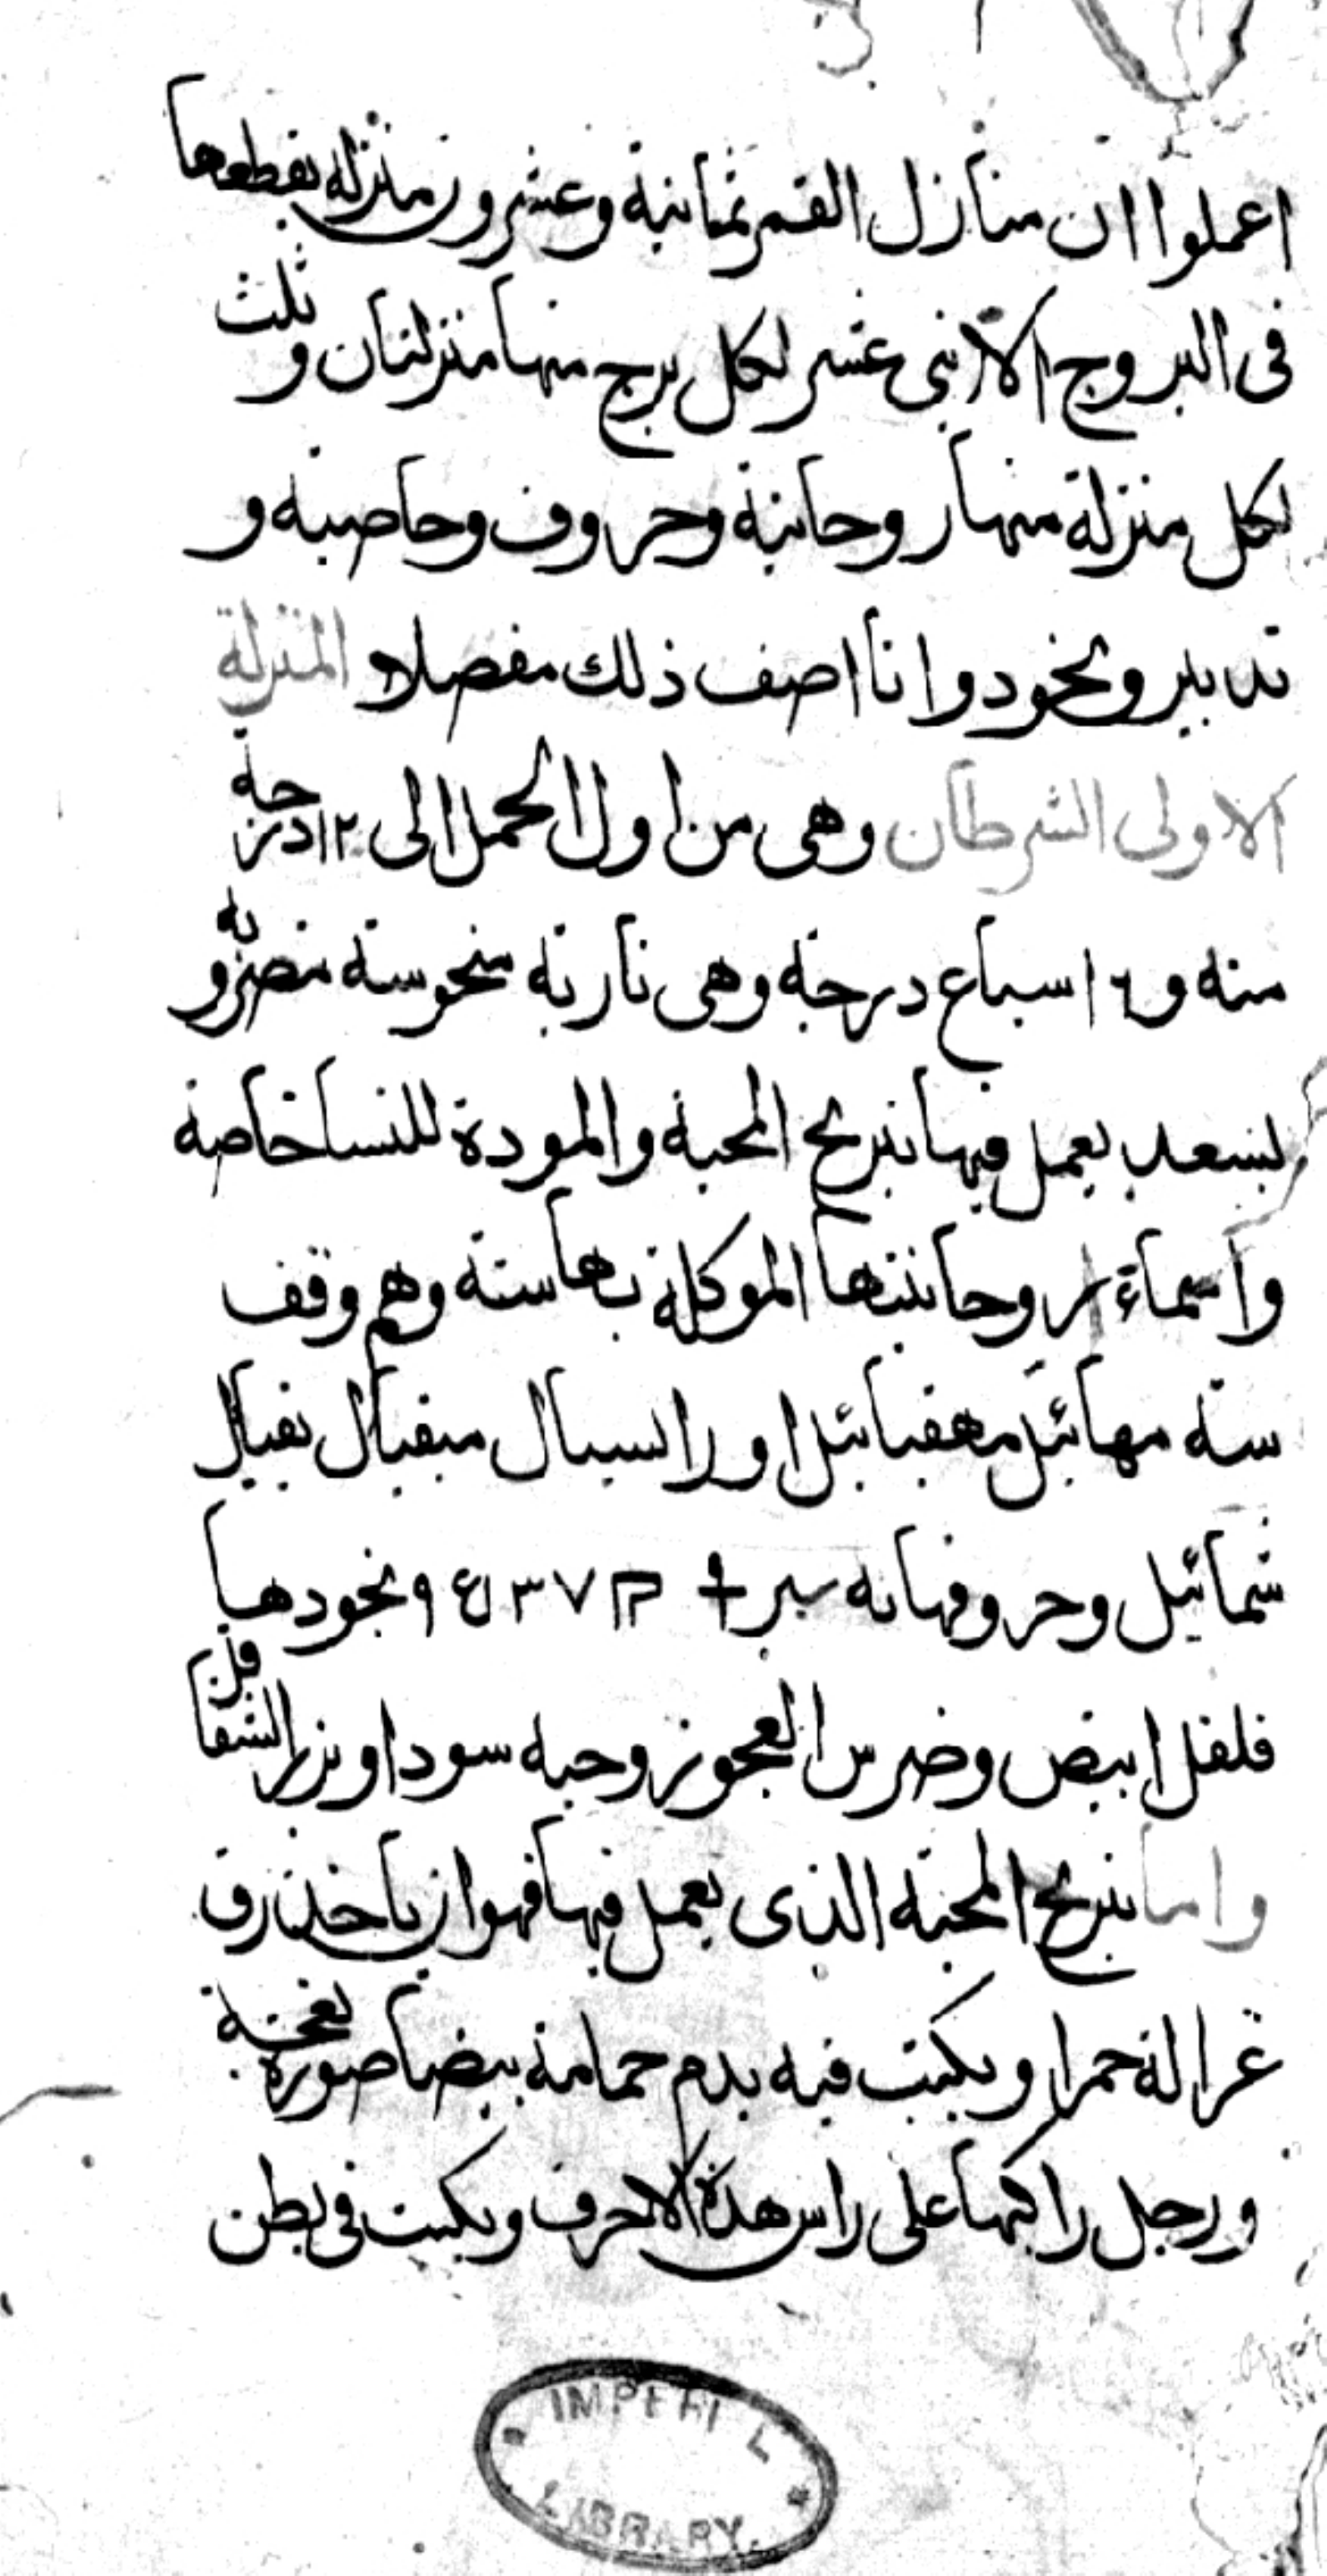 اعملوا ان منازل القمر ثمانية وعشرون منزله يقطعها
فى البروج الاثنى عشر لكل برج منها منزلتان وثلث
لكل منزلة منها روحانية وحروف وخاصيه و
تدبير وبخور وانا اصف ذلك مفصلا المنزلة
الاولى الشرطان وهى من اول الحمل الى ١٢ درجة
منه و ٦ اسباع درجة وهى نارية منحوسة
بسعد يعمل فيها نيرنج المحبة والمودة للنسا خاصة
واسماء روحانيتها الموكلة بها ستة وهم وقف
ستة مهائيل مهقيائيل اوراسيال ميقيال
شمائيل وحروفها ٧ ٣ ٩ وبخورها
فلفل ابيض وضرس العجوز وحبه سودا وبزر الشقاقل
واما نيرنج المحبة الذى يعمل فيها فهو ان ياخذ رق
غزالة حمرا ويكتب فيه بدم حمامة بيضا صورة
ورجل راكبها على راس هذة الاحرف ويكتب فى بطن
IMPERI L
LIBRARY.